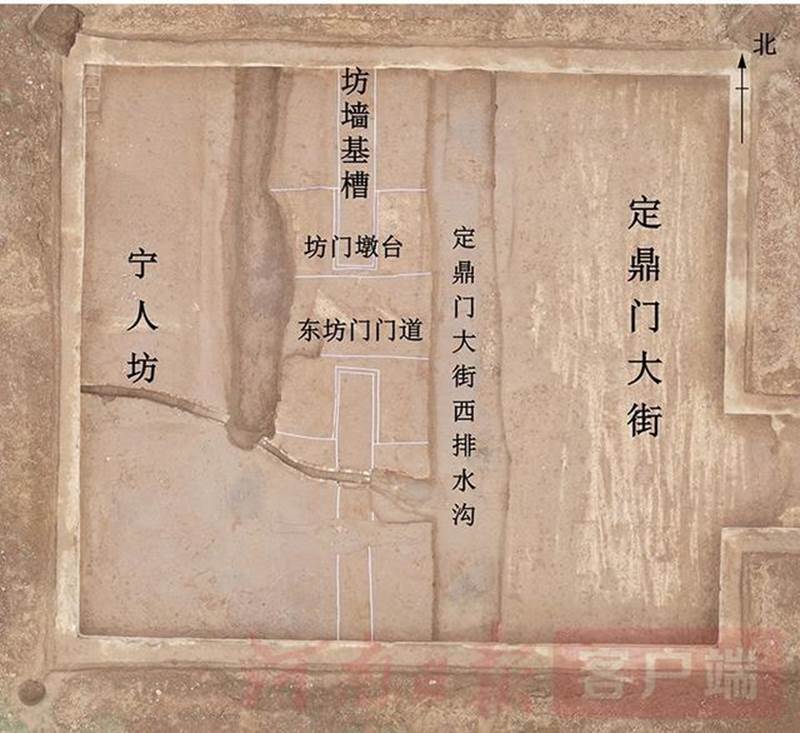 北
坊墙基槽
坊门墩台
东坊门门道
宁人坊
定鼎门大街西排水沟
定鼎门大街
河南日报 客户端